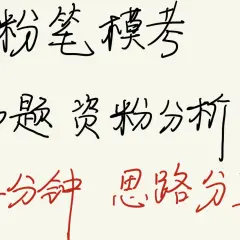 粉笔模考
题 资粉分析
分钟 思路分